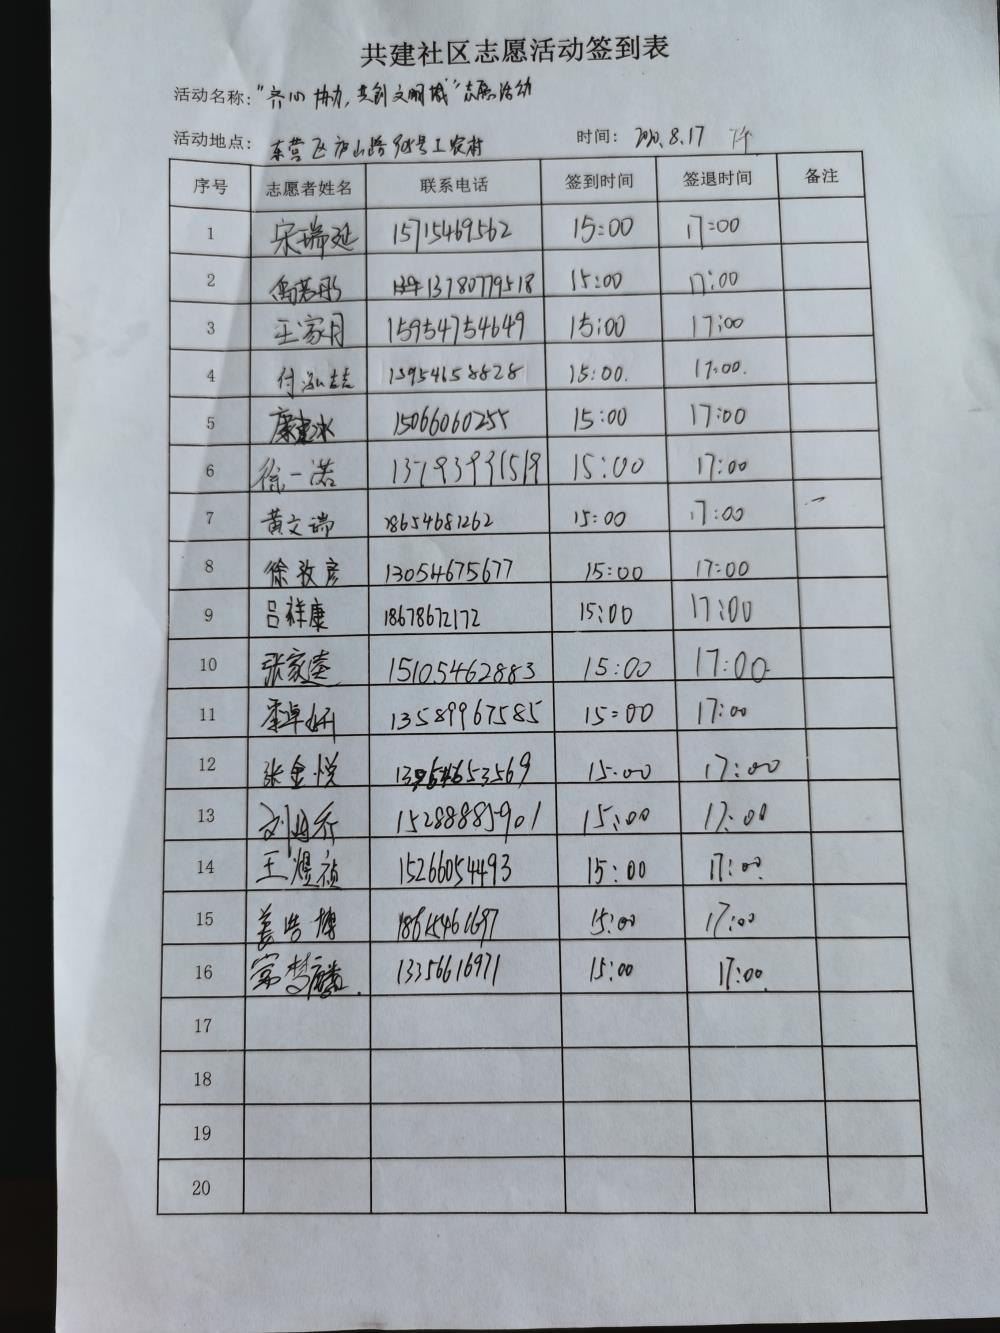 共建社区志愿活动签到表
活动名称："齐心协力，共创文明城"志愿活动
活动地点：东营区庐山路 号工农村 时间：2020.8.17
序号 志愿者姓名 联系电话 签到时间 签退时间 备注
1 宋瑞延 15715469562 15:00 17:00
2 13780779518 15:00 17:00
3 王家月 15954754649 15:00 17:00
4 付泓喆 13954658828 15:00. 17:00.
5 康建冰 15066060255 15:00 17:00
6 徐一诺 13793991519 15:00 17:00
7 黄文瑞 18654681262 15:00 17:00
8 徐敬彦 13054675677 15:00 17:00
9 吕祥康 18678672172 15:00 17:00
10 张家逵 15105462883 15:00 17:00
11 13589967585 15:00 17:00
12 张金悦 15:00 17:00
13 15288885901 15:00 17:00
14 王煜祯 15266054493 15:00 17:00
15 姜浩博 18615461697 15:00 17:00
16 梦麟. 13356616971 15:00 17:00.
17
18
19
20